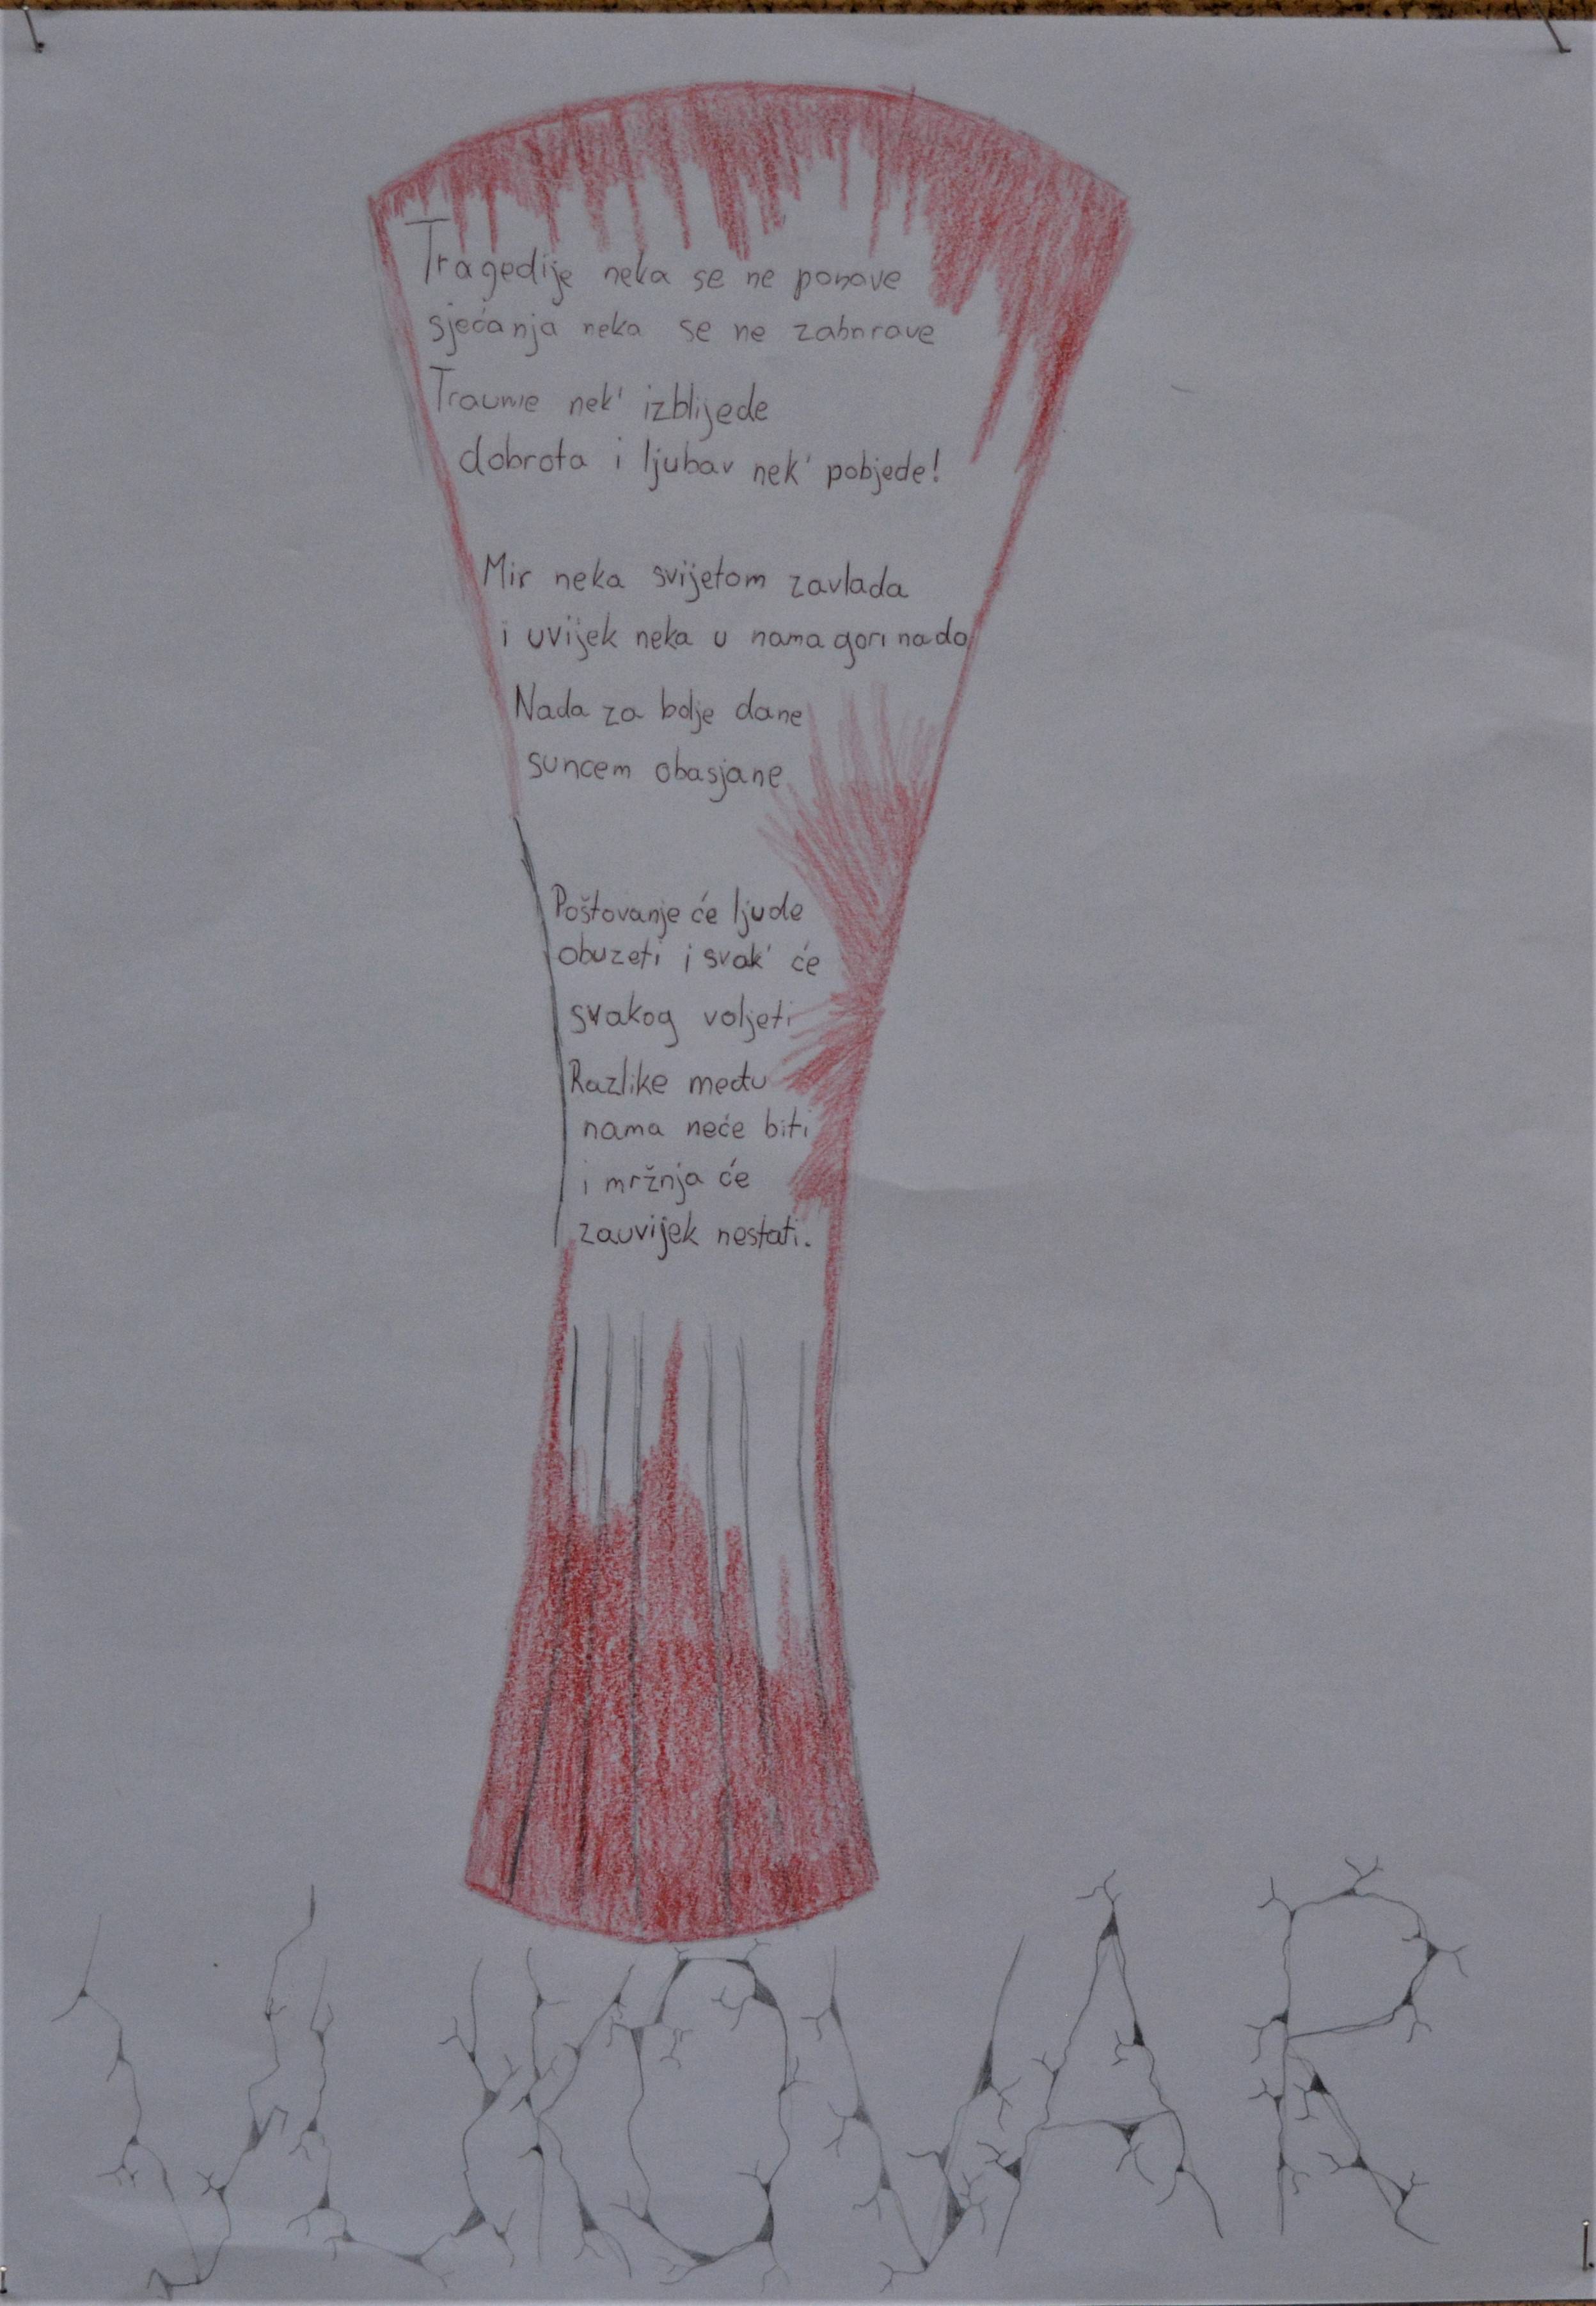 Tragedije neka se ne ponave
sjećanja neka se ne zabnrave
Traume nek' izblijede
dobrota i ljubav nek' pobjede!
Mir neka svijetom zavlada
i uvijek neka u nama gori nada
Nada za bolje dane
suncem obasjane
Poštovanje će ljude
obuzeti i svak' će
svakog voljeti
Razlike među
nama neće biti
i mržnja će
zauvijek nestati.
VUKOVAR